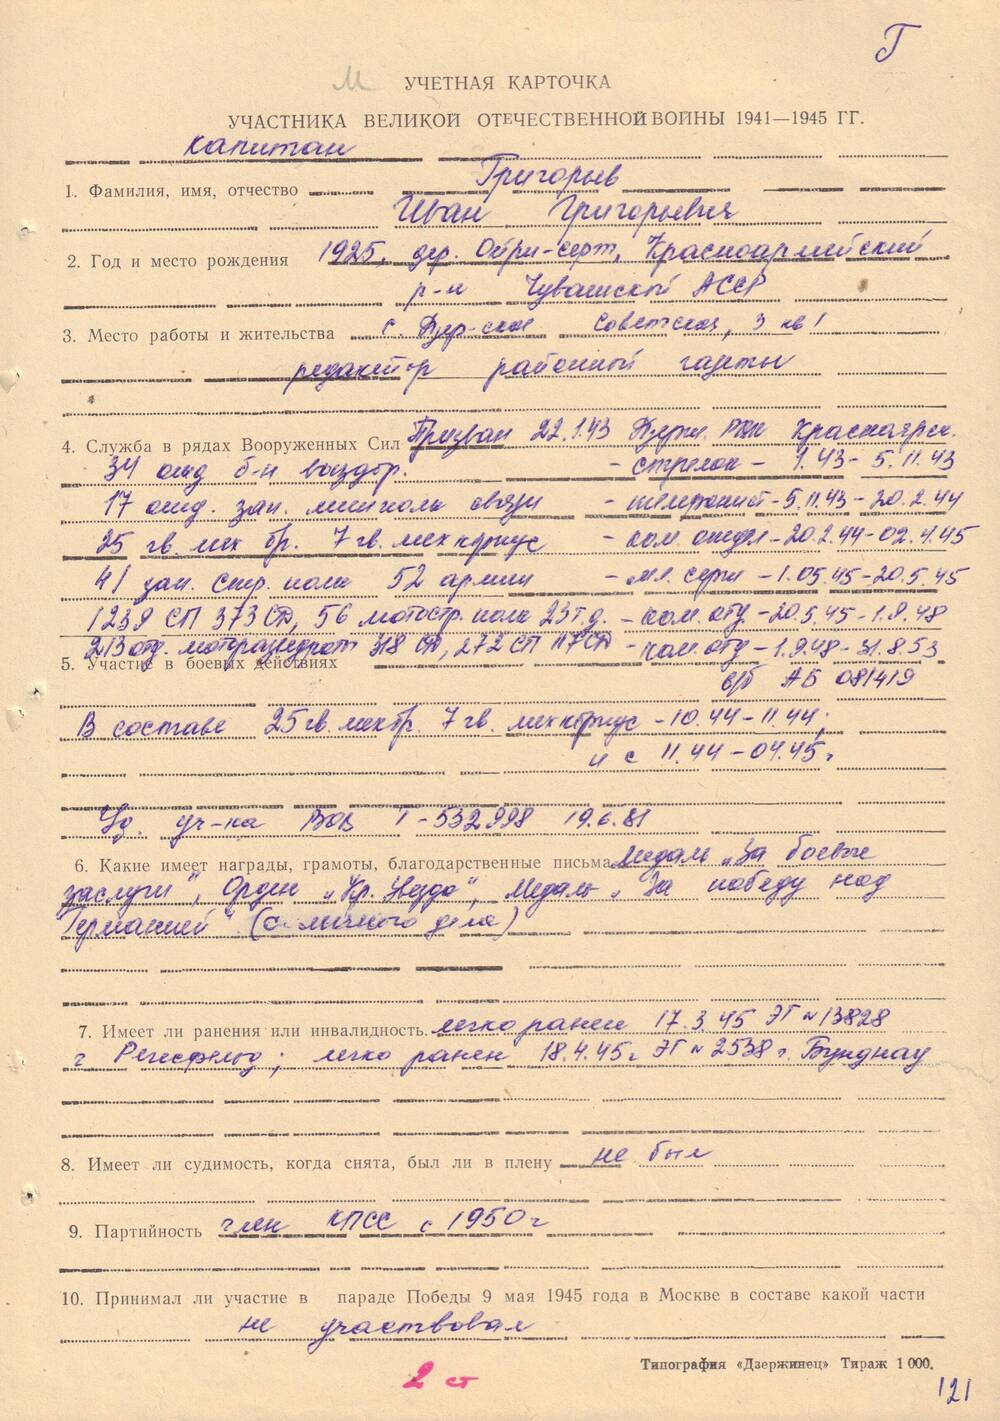 Г
М УЧЕТНАЯ КАРТОЧКА
УЧАСТНИКА ВЕЛИКОЙ ОТЕЧЕСТВЕННОЙ ВОЙНЫ 1941—1945 ГГ.
капитан
1. Фамилия, имя, отчество Григорьев
Иван Григорьевич
2. Год и место рождения 1925, дер. Ойри-серт, Красноармейский
р-н Чувашской АССР
3. Место работы и жительства с. Дзер-ское Советская, 3 кв 1
редактор районной газеты
4. Служба в рядах Вооруженных Сил Призван 22.1.43 Дзерж. РВК Красноярск.
34 отд б-н выздор. – стрелок – 1.43 – 5.11.43
17 отд. зап. линполк связи – телефонист – 5.11.43 – 20.2.44
25 гв. мех бр. 7 гв. мехкорпус – ком. отдел – 20.2.44 – 02.4.45
41 зап. стр. полк 52 армии – мл. серж – 1.05.45 – 20.5.45
1239 СП 373 СД, 56 мотостр. полк 23 т.д. – ком. отд – 20.5.45 – 1.9.48
213 отд. моторазведрот 318 СД, 272 СП 117 СД – ком. отд – 1.9.48 – 31.8.53
5. Участие в боевых действиях
в/б АБ 081419
В составе 25 гв. мехбр. 7 гв. мехкорпус – 10.44 – 11.44;
и с 11.44 – 04.45 г
Уд. уч-ка ВОВ Г-532998 19.6.81
6. Какие имеет награды, грамоты, благодарственные письма Медаль „За боевые
заслуги", Орден „Кр. Звезда", Медаль „За победу над
Германией" (с личного дела)
7. Имеет ли ранения или инвалидность. легко ранен 17.3.45 ЭГ № 13828
г Регесфельд; легко ранен 18.4.45 г ЭГ № 2538 г. Бунднау
8. Имеет ли судимость, когда снята, был ли в плену не был
9. Партийность член КПСС с 1950 г
10. Принимал ли участие в параде Победы 9 мая 1945 года в Москве в составе какой части
не участвовал
Типография «Дзержинец» Тираж 1 000.
2 ст
121